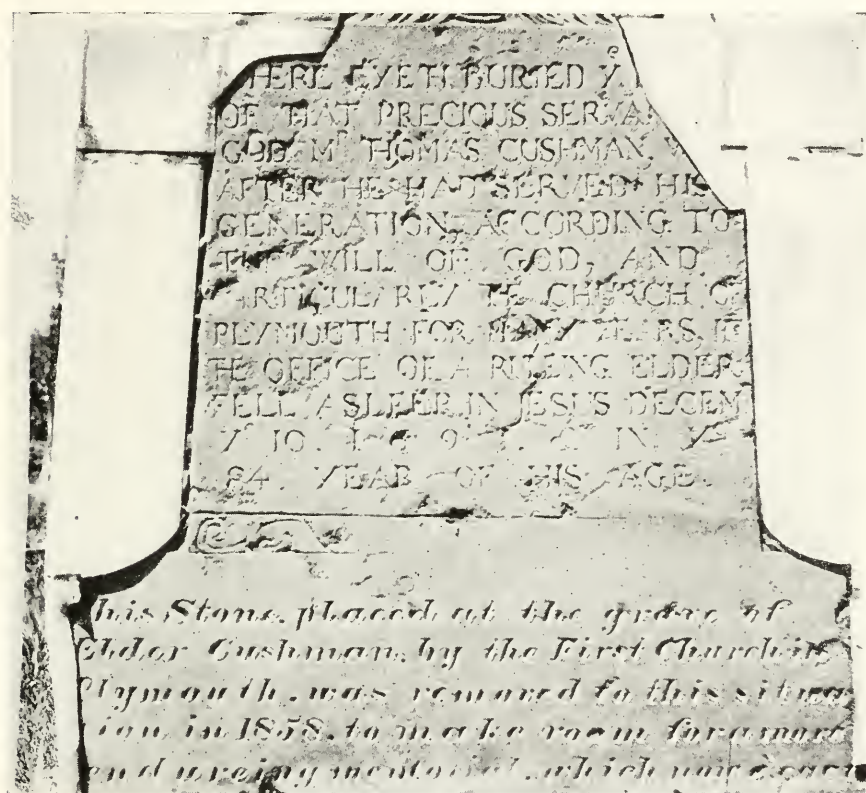 HERE LYETH BURIED Y
OF THAT PRECIOUS SERVA
GOD, Mr THOMAS CUSHMAN, W
AFTER HE HAD SERVED HIS
GENERATION ACCORDING TO
THE WILL OF GOD, AND
PARTICULARLY THE CHURCH OF
PLYMOUTH FOR MANY YEARS, IN
THE OFFICE OF A RULING ELDER
FELL ASLEEP IN JESUS DECEM
Y 10 1 6 9 1 IN Ye
84 YEAR OF HIS AGE
This Stone, placed at the grave of
Elder Cushman, by the First Church in
Plymouth, was removed to this situa
tion, in 1858, to make room for a more
enduring memorial, which now